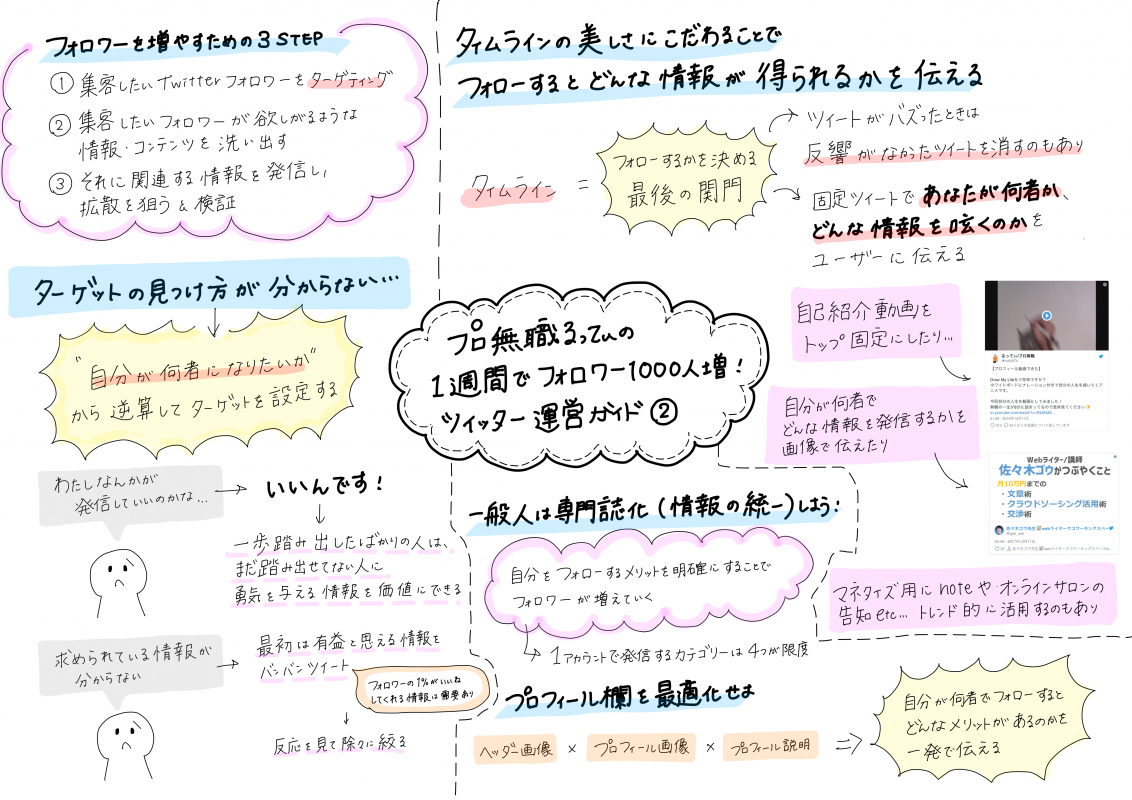 フォロワーを増やすための3STEP
① 集客したいTwitterフォロワーをターゲティング
② 集客したいフォロワーが欲しがるような
情報・コンテンツを洗い出す
③ それに関連する情報を発信し、
拡散を狙う&検証
ターゲットの見つけ方が分からない…
"自分が何者になりたいか"
から逆算してターゲットを設定する
わたしなんかが
発信していいのかな…
いいんです!
一歩踏み出したばかりの人は、
まだ踏み出せてない人に
勇気を与える情報を価値にできる
求められている情報が
分からない
最初は有益と思える情報を
バンバンツイート
フォロワーの1%がいいね
してくれる情報は需要あり
反応を見て除々に絞る
プロ無職るってぃの
1週間でフォロワー1000人増!
ツイッター運営ガイド②
タイムラインの美しさにこだわることで
フォローするとどんな情報が得られるかを伝える
タイムライン =
フォローするかを決める
最後の関門
ツイートがバズったときは
反響がなかったツイートを消すのもあり
固定ツイートであなたが何者か、
どんな情報を呟くのかを
ユーザーに伝える
自己紹介動画を
トップ固定にしたり…
自分が何者で
どんな情報を発信するかを
画像で伝えたり
るってぃ/プロ無職
【プロフィール動画できた】
Draw My Lifeをご存知ですか?
Webライター/講師
佐々木ゴウがつぶやくこと
月10万円までの
・文章術
・クラウドソーシング活用術
・交渉術
マネタイズ用にnoteやオンラインサロンの
告知etc… トレンド的に活用するのもあり
一般人は専門誌化(情報の統一)しよう!
自分をフォローするメリットを明確にすることで
フォロワーが増えていく
1アカウントで発信するカテゴリーは4つが限度
プロフィール欄を最適化せよ
ヘッダー画像 × プロフィール画像 × プロフィール説明 ⇒
自分が何者でフォローすると
どんなメリットがあるのかを
一発で伝える